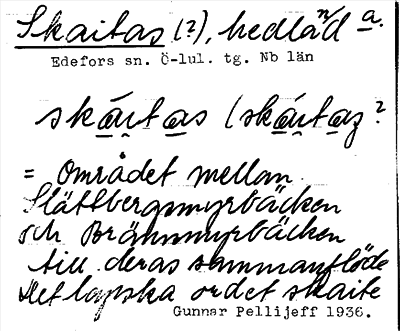 Skaitas (?), hedland a.
Edefors sn. Ö-lul. tg. Nb län
skáitas (skáitaz?
= Området mellan
Slättbergsmyrbäcken
och Brännmyrbäcken
till deras sammanflöde
Det lapska ordet skaite
Gunnar Pellijeff 1936.